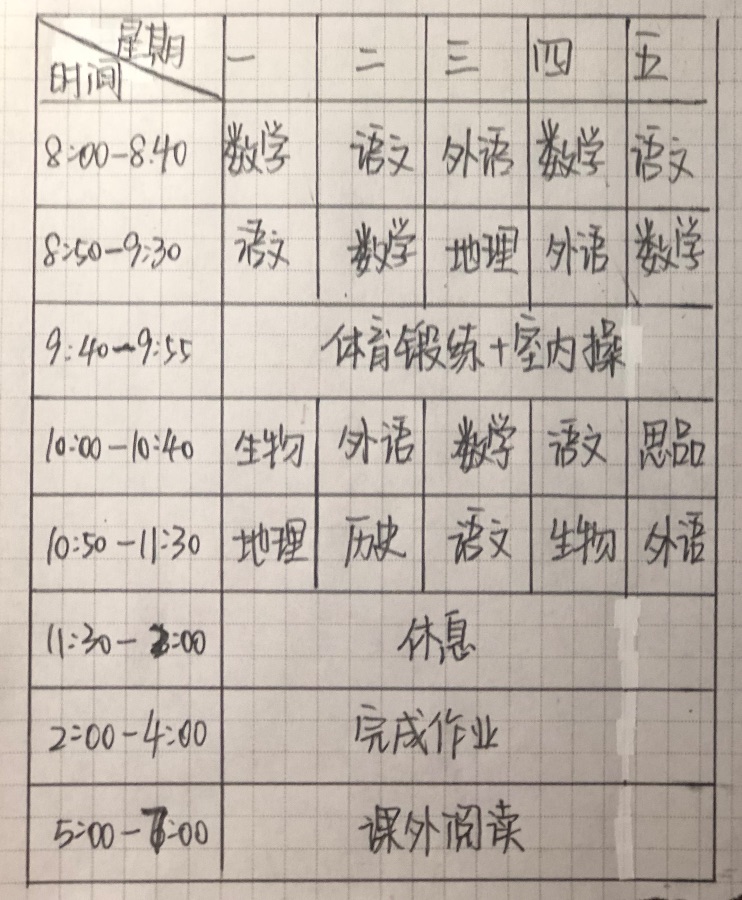 星期
时间 一 二 三 四 五
8:00-8:40 数学 语文 外语 数学 语文
8:50-9:30 语文 数学 地理 外语 数学
9:40-9:55 体育锻练+室内操
10:00-10:40 生物 外语 数学 语文 思品
10:50-11:30 地理 历史 语文 生物 外语
11:30-2:00 休息
2:00-4:00 完成作业
5:00-:00 课外阅读